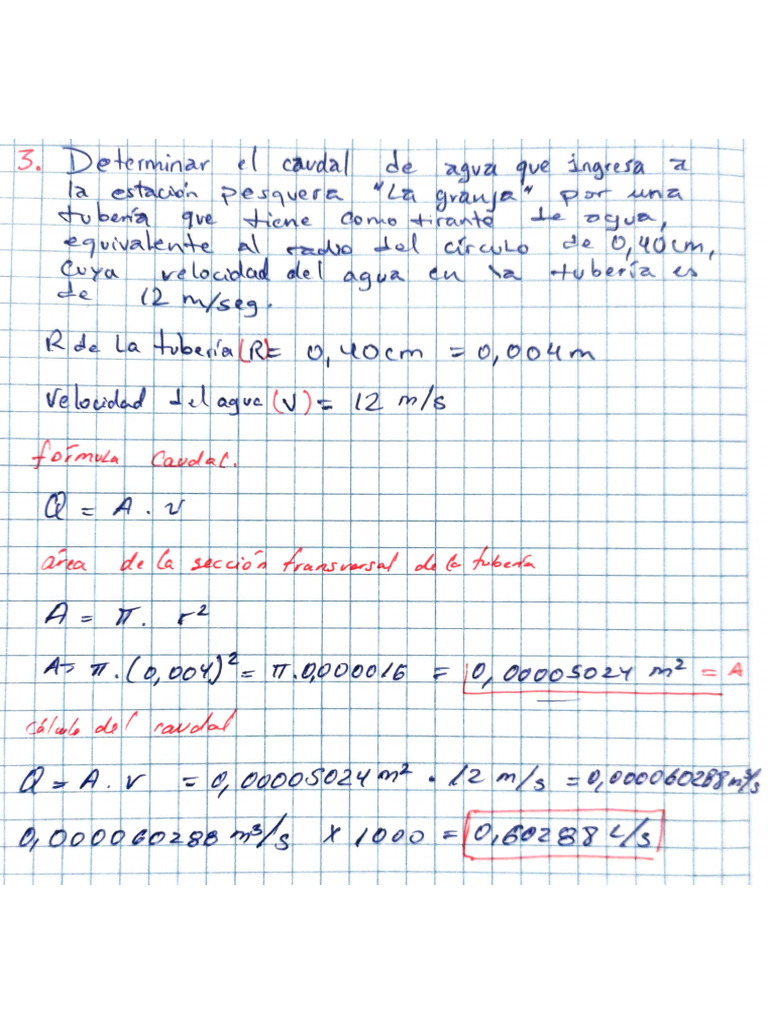 3. Determinar el caudal de agua que ingresa a
la estación pesquera "La granja" por una
tubería que tiene como tirante de agua,
equivalente al radio del círculo de 0,40cm,
cuya velocidad del agua en la tubería es
de 12 m/seg.
R de la tubería (R)= 0,40cm = 0,004m
Velocidad del agua (V) = 12 m/s
formula caudal.
Q = A . v
área de la sección transversal de la tubería
A = π. r²
A= π.(0,004)² = π.0,000016 = 0,00005024 m² = A
cálculo del caudal
Q = A. v = 0,00005024m² . 12 m/s = 0,000060288m³/s
0,000060288 m³/s x 1000 = 0,60288 L/s